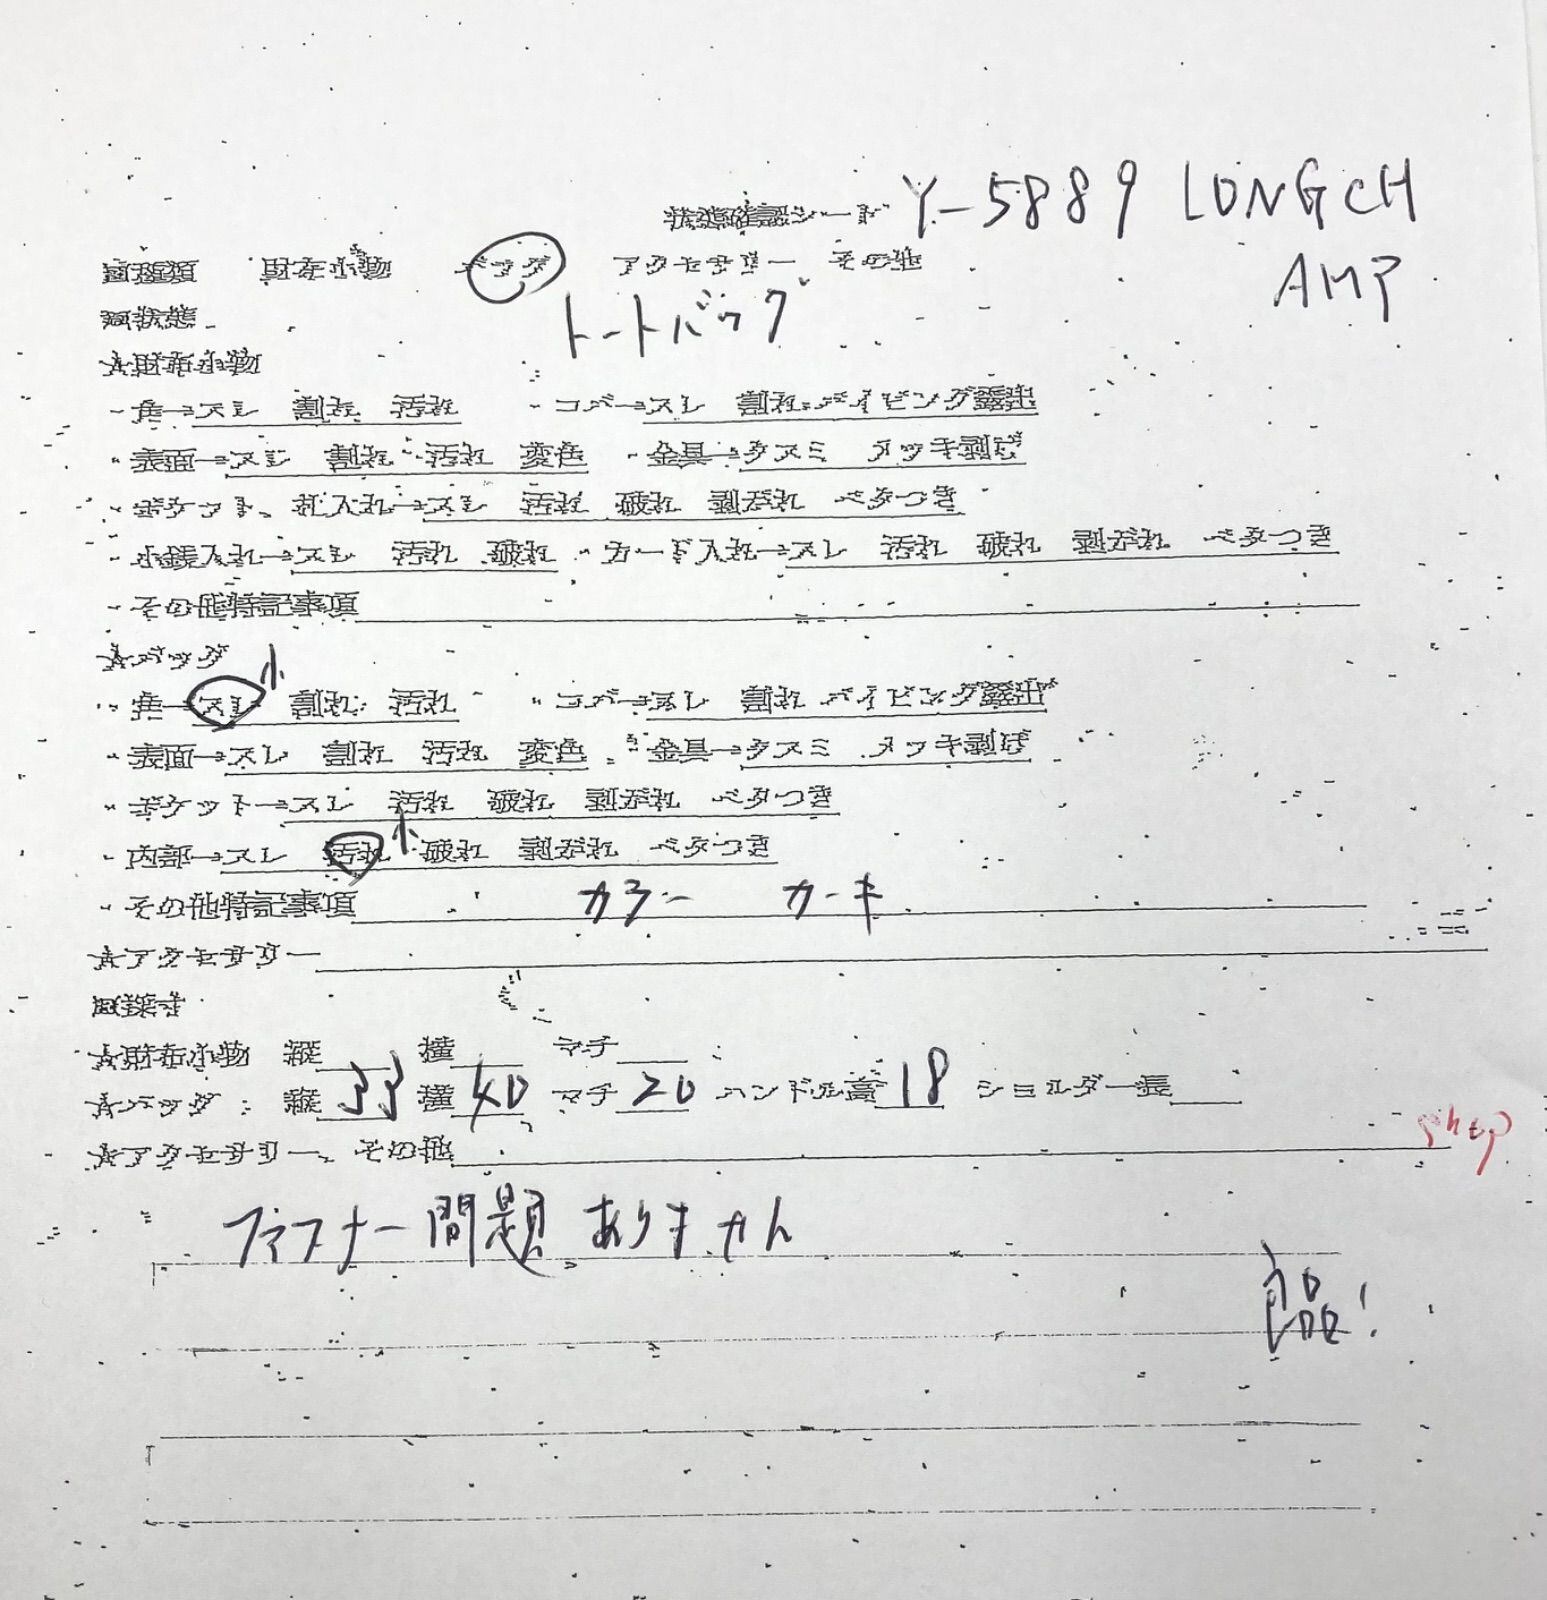 状態確認シート Y-5889 LONGCH
AMP
■種類 財布小物 バッグ アクセサリー その他
トートバッグ
■状態
☆財布小物
・角→スレ 割れ 汚れ ・コバ→スレ 割れ パイピング露出
・表面→スレ 割れ 汚れ 変色 ・金具→クスミ メッキ剥げ
・ポケット、札入れ→スレ 汚れ 破れ 型崩れ ベタつき
・小銭入れ→スレ 汚れ 破れ ・カード入れ→スレ 汚れ 破れ 型崩れ ベタつき
・その他特記事項
☆バッグ
小
・角→スレ 割れ 汚れ ・コバ→スレ 割れ パイピング露出
・表面→スレ 割れ 汚れ 変色 ・金具→クスミ メッキ剥げ
・ポケット→スレ 汚れ 破れ 型崩れ ベタつき
・内部→スレ 汚れ 小 破れ 型崩れ ベタつき
・その他特記事項 カラー カーキ
☆アクセサリー
■採寸
☆財布小物 縦 横 マチ
☆バッグ 縦 33 横 40 マチ 20 ハンドル高 18 ショルダー長
shop
☆アクセサリー、その他
ファスナー問題ありません
良品!